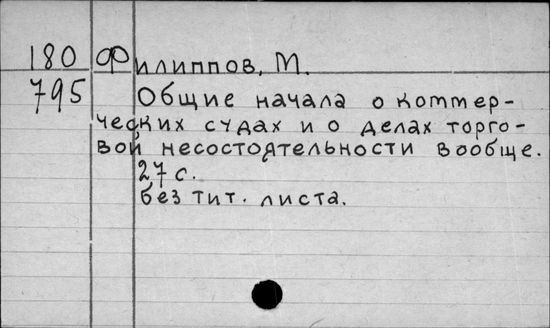 180 Филиппов, М.
795 Общие начала о коммер-
ческих судах и о делах торго-
вой несостоятельности вообще.
27 с.
без тит. листа.